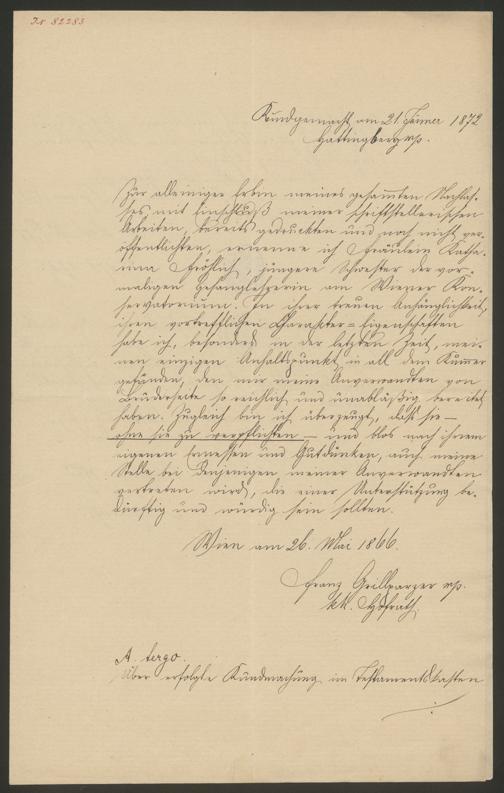 I.N. 82283
Kundgemacht am 21. Jänner 1872
Hattingberg mp.
Zur alleinigen Erbin meines gesammten Nachlas-
ses mit Einschluß meiner schriftstellerischen
Arbeiten, bereits gedruckten und noch nicht ver-
öffentlichten, ernenne ich Fräulein Katha-
rina Fröhlich, jüngere Schwester der vor-
maligen Gesangslehrerin am Wiener Kon-
servatorium. In ihrer treuen Anhänglichkeit,
ihren vortrefflichen Charakter-Eigenschaften
habe ich, besonders in der letzten Zeit, mei-
nen einzigen Anhaltspunkt in all dem Kummer
gefunden, den mir meine Anverwandten von
Bruderseite so reichlich und unabläßig bereitet
haben. Zugleich bin ich überzeugt, daß sie –
ohne sie zu verpflichten – und blos nach ihrem
eigenen Ermessen und Gutdünken, auch meine
Stelle bei Denjenigen meiner Anverwandten
vertreten wird, die einer Unterstützung be-
dürftig und würdig sein sollten.
Wien am 26. Mai 1866.
Franz Grillparzer mp.
kk. Hofrath
A tergo.
Über erfolgte Kundmachung im Testamentskasten